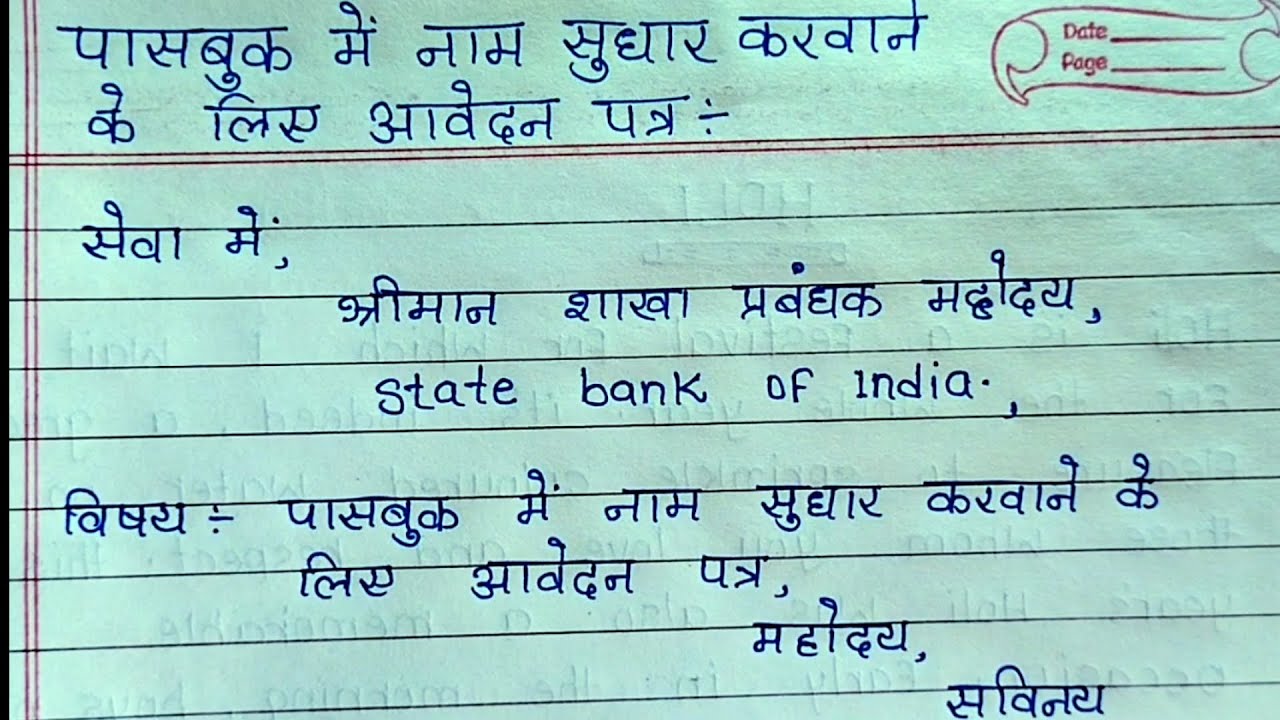 पासबुक में नाम सुधार करवाने
के लिए आवेदन पत्र ÷
Date
Page
सेवा में,
श्रीमान शाखा प्रबंधक महोदय,
state bank of India.,
विषय ÷ पासबुक में नाम सुधार करवाने के
लिए आवेदन पत्र,
महोदय,
सविनय